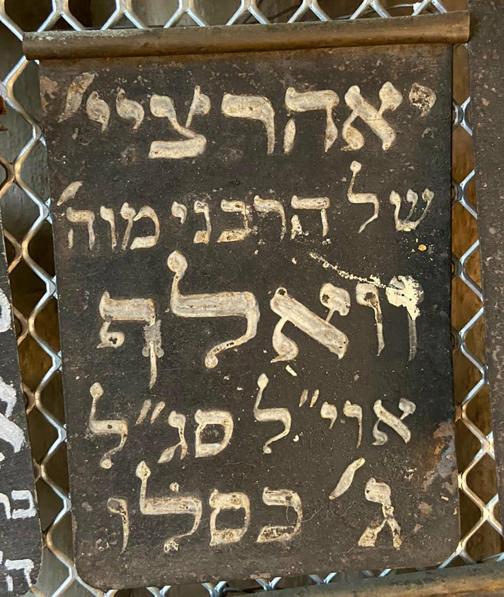 יאהרציי'
של הרבני מוה'
וואלף
אוי"ל סג"ל
ג' כסלו